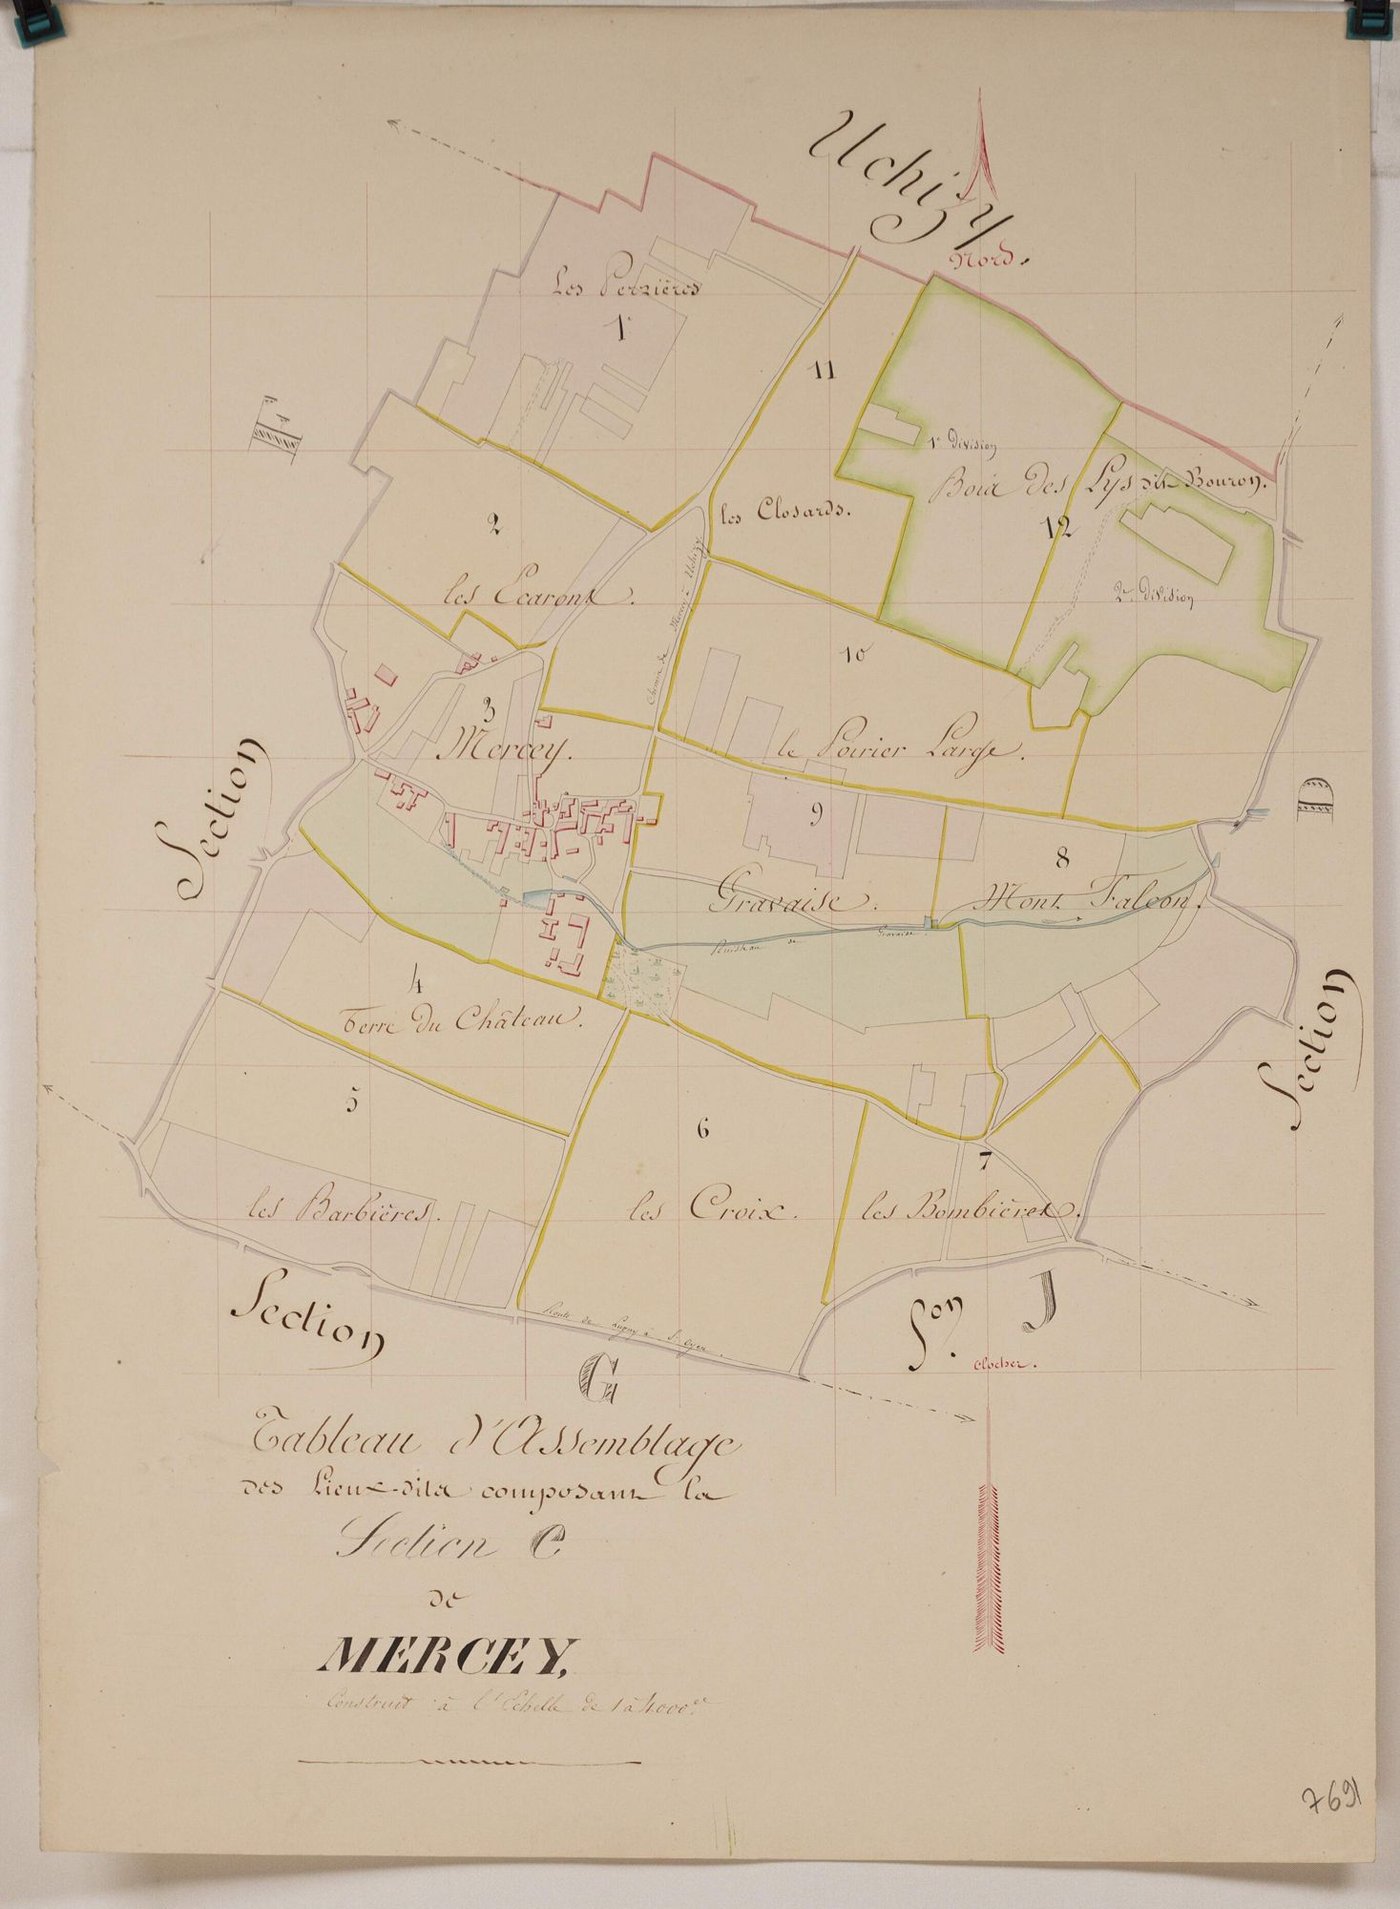 Uchizy
Nord.
Les Perrières
1r
11
F
1e Division
Bois des Lys dit Bouron.
les Closards.
12
2
les Ecaront.
2e Division
Chemin de Mercey à Uchizy
10
3
Mercey.
le Poirier Large.
Section
D
9
8
Gravaise.
Mont Falcon.
Ruisseau de Gravaise
4
Terre du Château.
Section
5
6
7
les Barbières.
les Croix.
les Bombières.
Section
G
Route de Lugny à St Oyen.
Son.
J
Clocher.
Tableau d'Assemblage
des Lieux-dits composant la
Section C
de
MERCEY,
Construit à l'Echelle de 1 à 4000e
7691